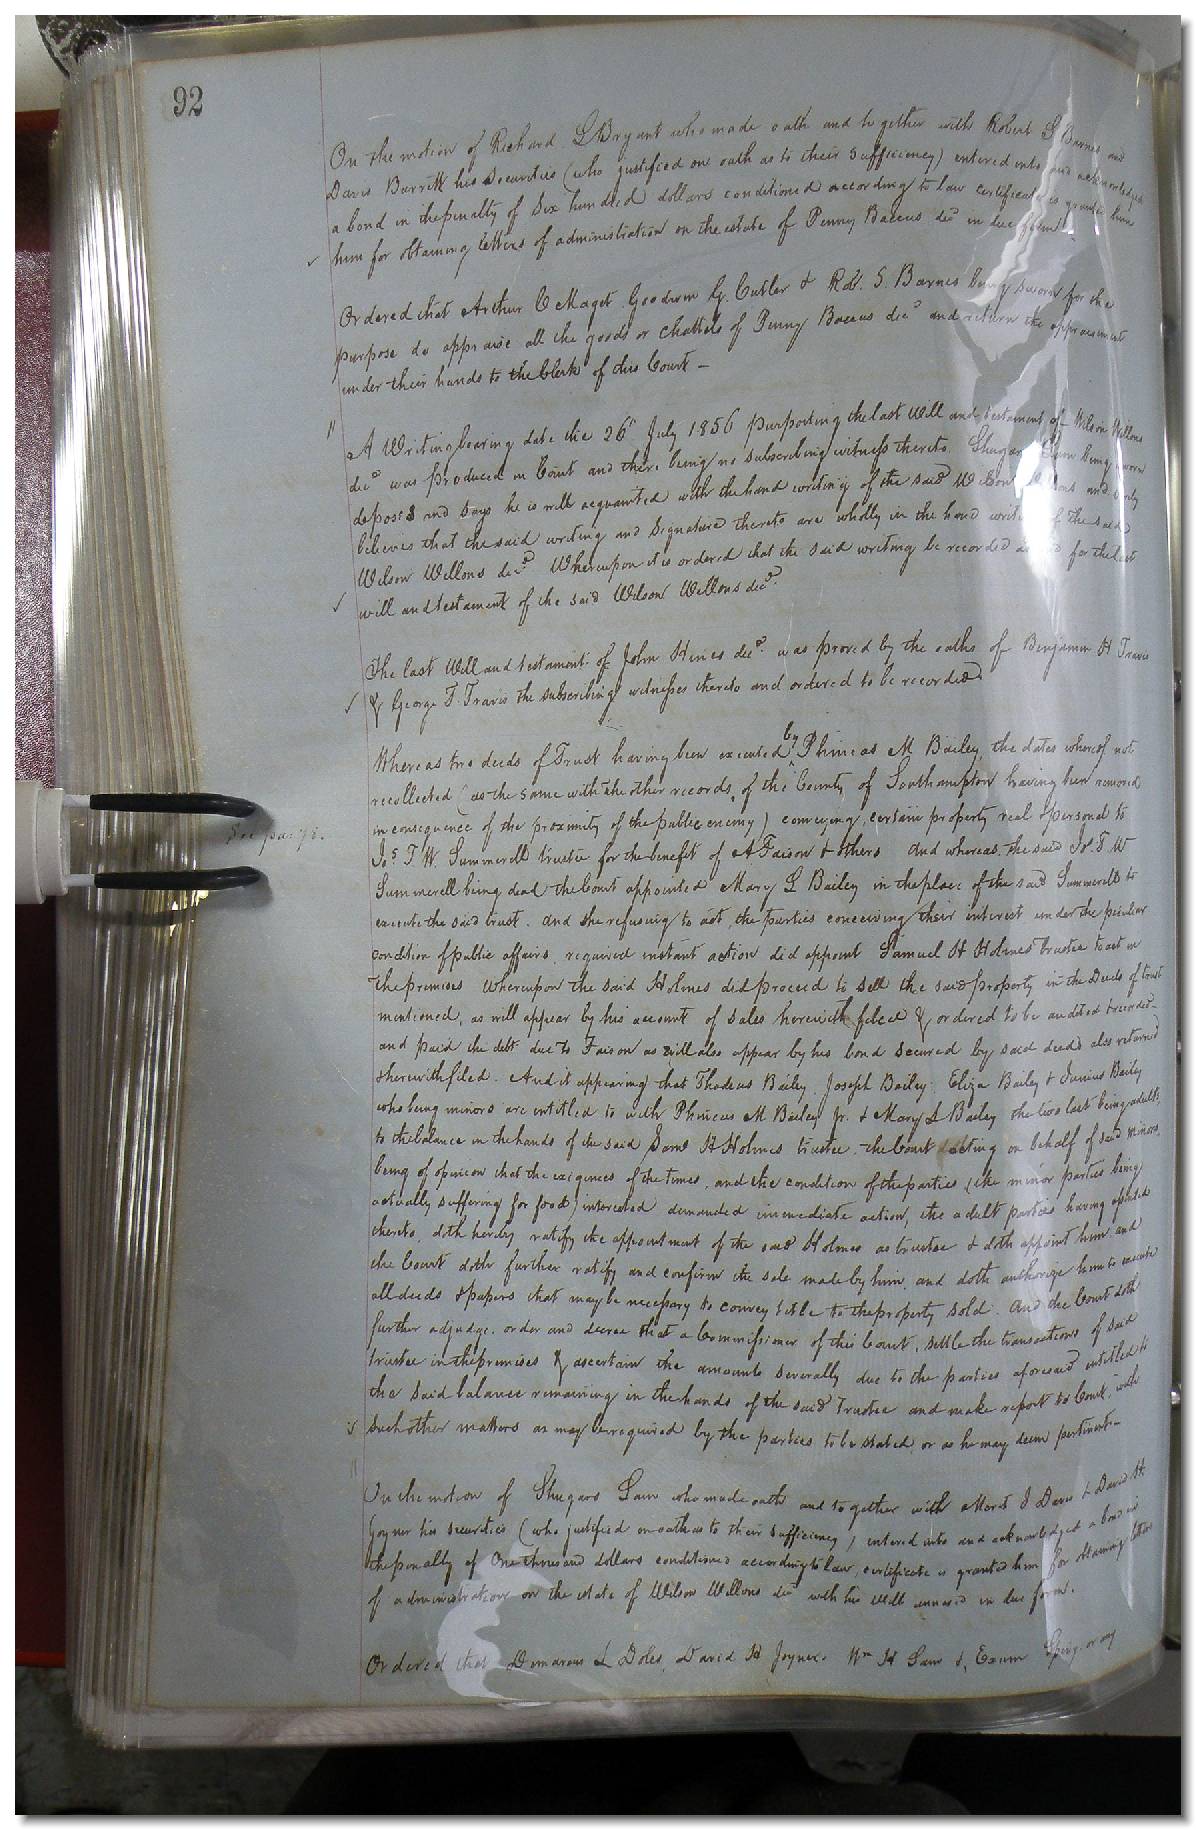 92
On the motion of Richard L Bryant who made oath and together with Robert S Barnes and
Davis Barrett his Securities (who justified on oath as to their sufficiency) entered into and acknowledged
a bond in the penalty of Six hundred dollars conditioned according to law certificate is granted
him for obtaining letters of administration on the estate of Penny Baccus decd in due form
Ordered that Arthur C Maget Goodwin G. Cutler & Rot. S. Barnes being sworn for the
purpose do appraise all the goods or chattels of Penny Baccus decd and return the appraisement
under their hands to the Clerk of this Court –
A Writing bearing date the 26th July 1856 purporting the last Will and testament of Wilson Wellons
decd was produced in Court and there being no subscribing witness thereto. Shugars Lam being sworn
deposes and says he is well acquainted with the hand writing of the said Wilson Wellons and verily
believes that the said writing and signature thereto are wholly in the hand writing of the said
Wilson Wellons decd Whereupon it is ordered that the said writing be recorded as and for the last
will and testament of the said Wilson Wellons decd.
The last Will and testament of John Hines decd. was proved by the oaths of Benjamin H Travis
& George T. Travis the subscribing witnesses thereto and ordered to be recorded
Whereas two deeds of Trust having been executed by Phineas M Bailey, the dates whereof not
recollected (as the same with the other records, of the County of Southampton having been removed
in consequence of the proximity of the public enemy) conveying, certain property real & personal to
Jos. T. W. Summerell trustee for the benefit of A Faison & others And whereas, the said Jos. T. W
Summerell being dead the Court appointed Mary L Bailey in the place of the said Summerell to
execute the said trust. and she refusing to act, the parties conceiving their interest under the peculiar
condition of public affairs, required instant action did appoint Samuel H Holmes trustee to act in
the premises Whereupon the said Holmes did proceed to sell the said property in the Deeds of trust
mentioned, as will appear by his account of sales herewith filed & ordered to be audited & recorded –
and paid the debt due to Faison as will also appear by his bond secured by said deeds also returned
& herewith filed. And it appearing that Thadeus Bailey, Joseph Bailey Eliza Bailey & Junius Bailey
who being minors are entitled to with Phineas M Bailey Jr. & Mary L Bailey the two last being adults,
to the balance in the hands of the said Saml H Holmes trustee. the Court acting on behalf of said minors,
being of opinion that the exigences of the times, and the condition of the parties (the minor parties being
actually suffering for food) interested demanded immediate action, the adult parties having
thereto, doth hereby ratify the appointment of the said Holmes as trustee & doth appoint him and
the Court doth further ratify and confirm the sale made by him, and doth authorize him to execute
all deeds & papers that may be necessary to convey title to the property sold. And the Court doth
further adjudge. order and decree that a Commissioner of this Court, settle the transactions of said
trustee in the premises & ascertain the amounts severally due to the parties aforesaid entitled to
the said balance remaining in the hands of the said Trustee and make report to Court, with
such other matters as may be required by the parties to be stated, or as he may deem pertinent –
See page
On the motion of Shugars Lam who made oath and together with J Davis & David H
Joyner his securities (who justified on oath as to their sufficiency) entered into and acknowledged a bond in
the penalty of One thousand dollars conditioned according to law, certificate is granted him for obtaining letters
of administration on the estate of Wilson Wellons decd with his Will annexed in due form.
Ordered that Demarcus L Doles, David H Joyner. Wm H Lam &, Exum Spivey or any